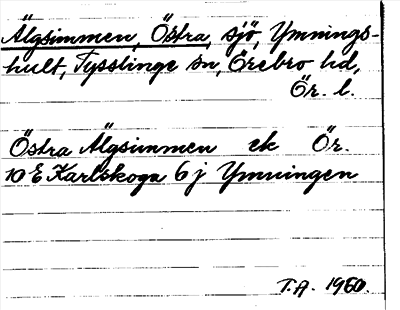 Älgsimmen, Östra, sjö, Ymnings-
hult, Tysslinge sn, Örebro hd,
Ör. l.
Östra Älgsimmen ek Ör.
10 E Karlskoga 6 j Ymningen
T.A. 1960.